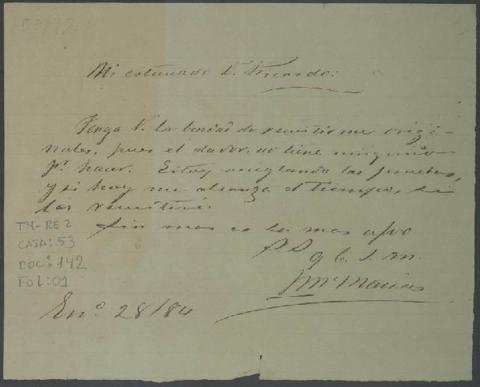 Mi estimado D. Ricardo:
Tenga V. la bondad de remitirme origi-
nales, pues el dador no tiene ninguno
pr. hacer. Estoy arreglando las pruebas,
y si hoy me alcanza el tiempo, se
las remitiré.
Sin mas es de Vmas afmo
q b. s. m.
Macias
Eno. 28/84
TM-RE2
CAJA: 53
DOC: 142
FOL: 01